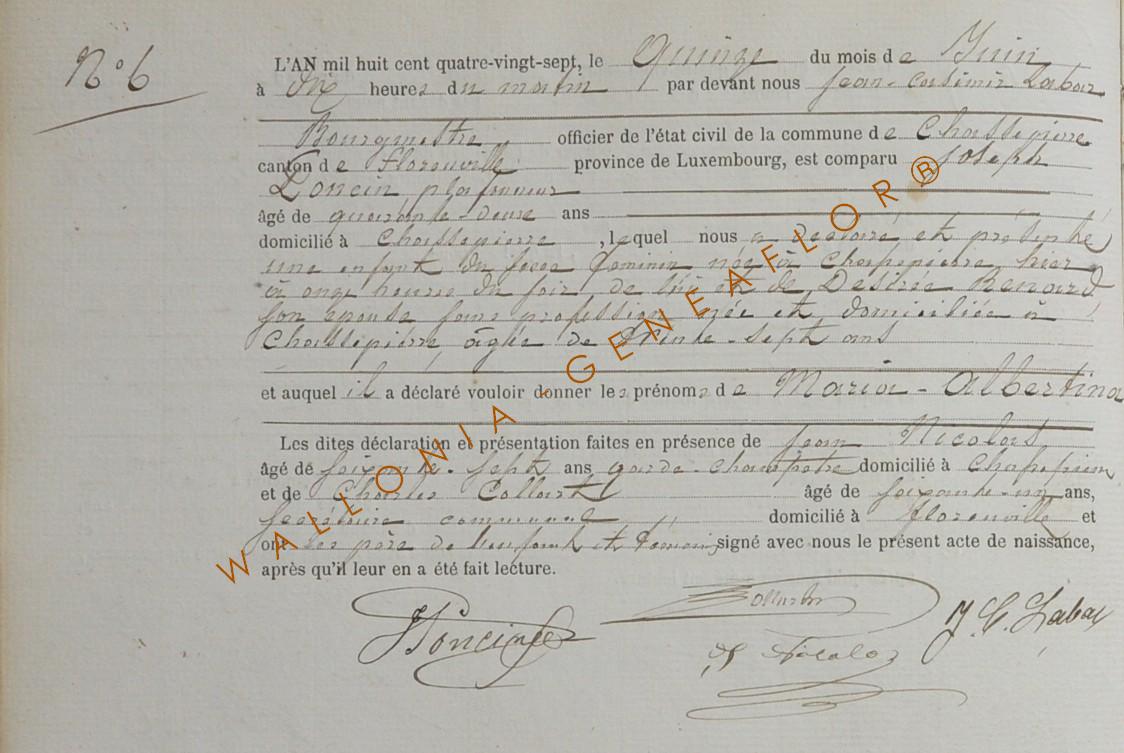 N° 6
L'AN mil huit cent quatre-vingt-sept, le Quinze du mois de Juin
à dix heures du matin par devant nous Jean-Casimir Labar
Bourgmestre officier de l'état civil de la commune de Chassepierre
canton de Florenville province de Luxembourg, est comparu Joseph
Poncin plafonneur
âgé de quarante-deux ans
domicilié à Chassepierre, lequel nous a déclaré et présenté
une enfant du sexe féminin née à Chassepierre, hier
à onze heures du soir, de lui et de Désirée Renard
son épouse sans profession née et domiciliée à
Chassepierre âgée de trente-sept ans
et auquel il a déclaré vouloir donner les prénoms de Maria-Albertina
Les dites déclaration et présentation faites en présence de Jean Nicolas
âgé de soixante-sept ans garde-champêtre domicilié à Chassepierre
et de Charles Collart âgé de soixante-un ans,
secrétaire communal domicilié à Florenville et
ont les père de l'enfant et témoins signé avec nous le présent acte de naissance,
après qu'il leur en a été fait lecture.
Collart J. C. Labar
J Poncin
J Nicolas
WALLONIA - GENEAFLOR®